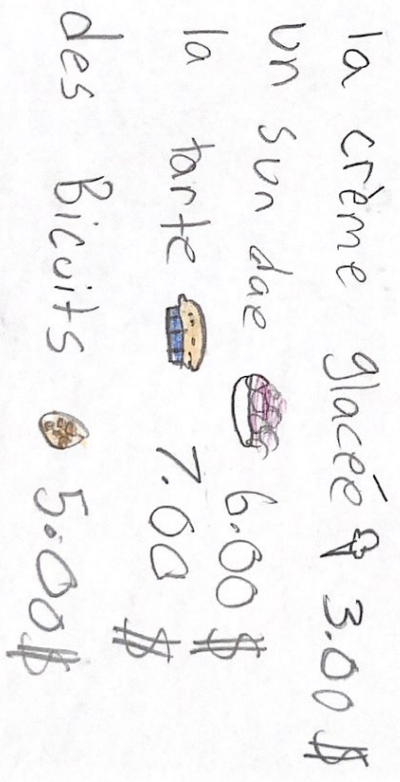 la crème glaceé 3.00 $
un sundae 6.00 $
la tarte 7.00 $
des Bicuits 5.00 $